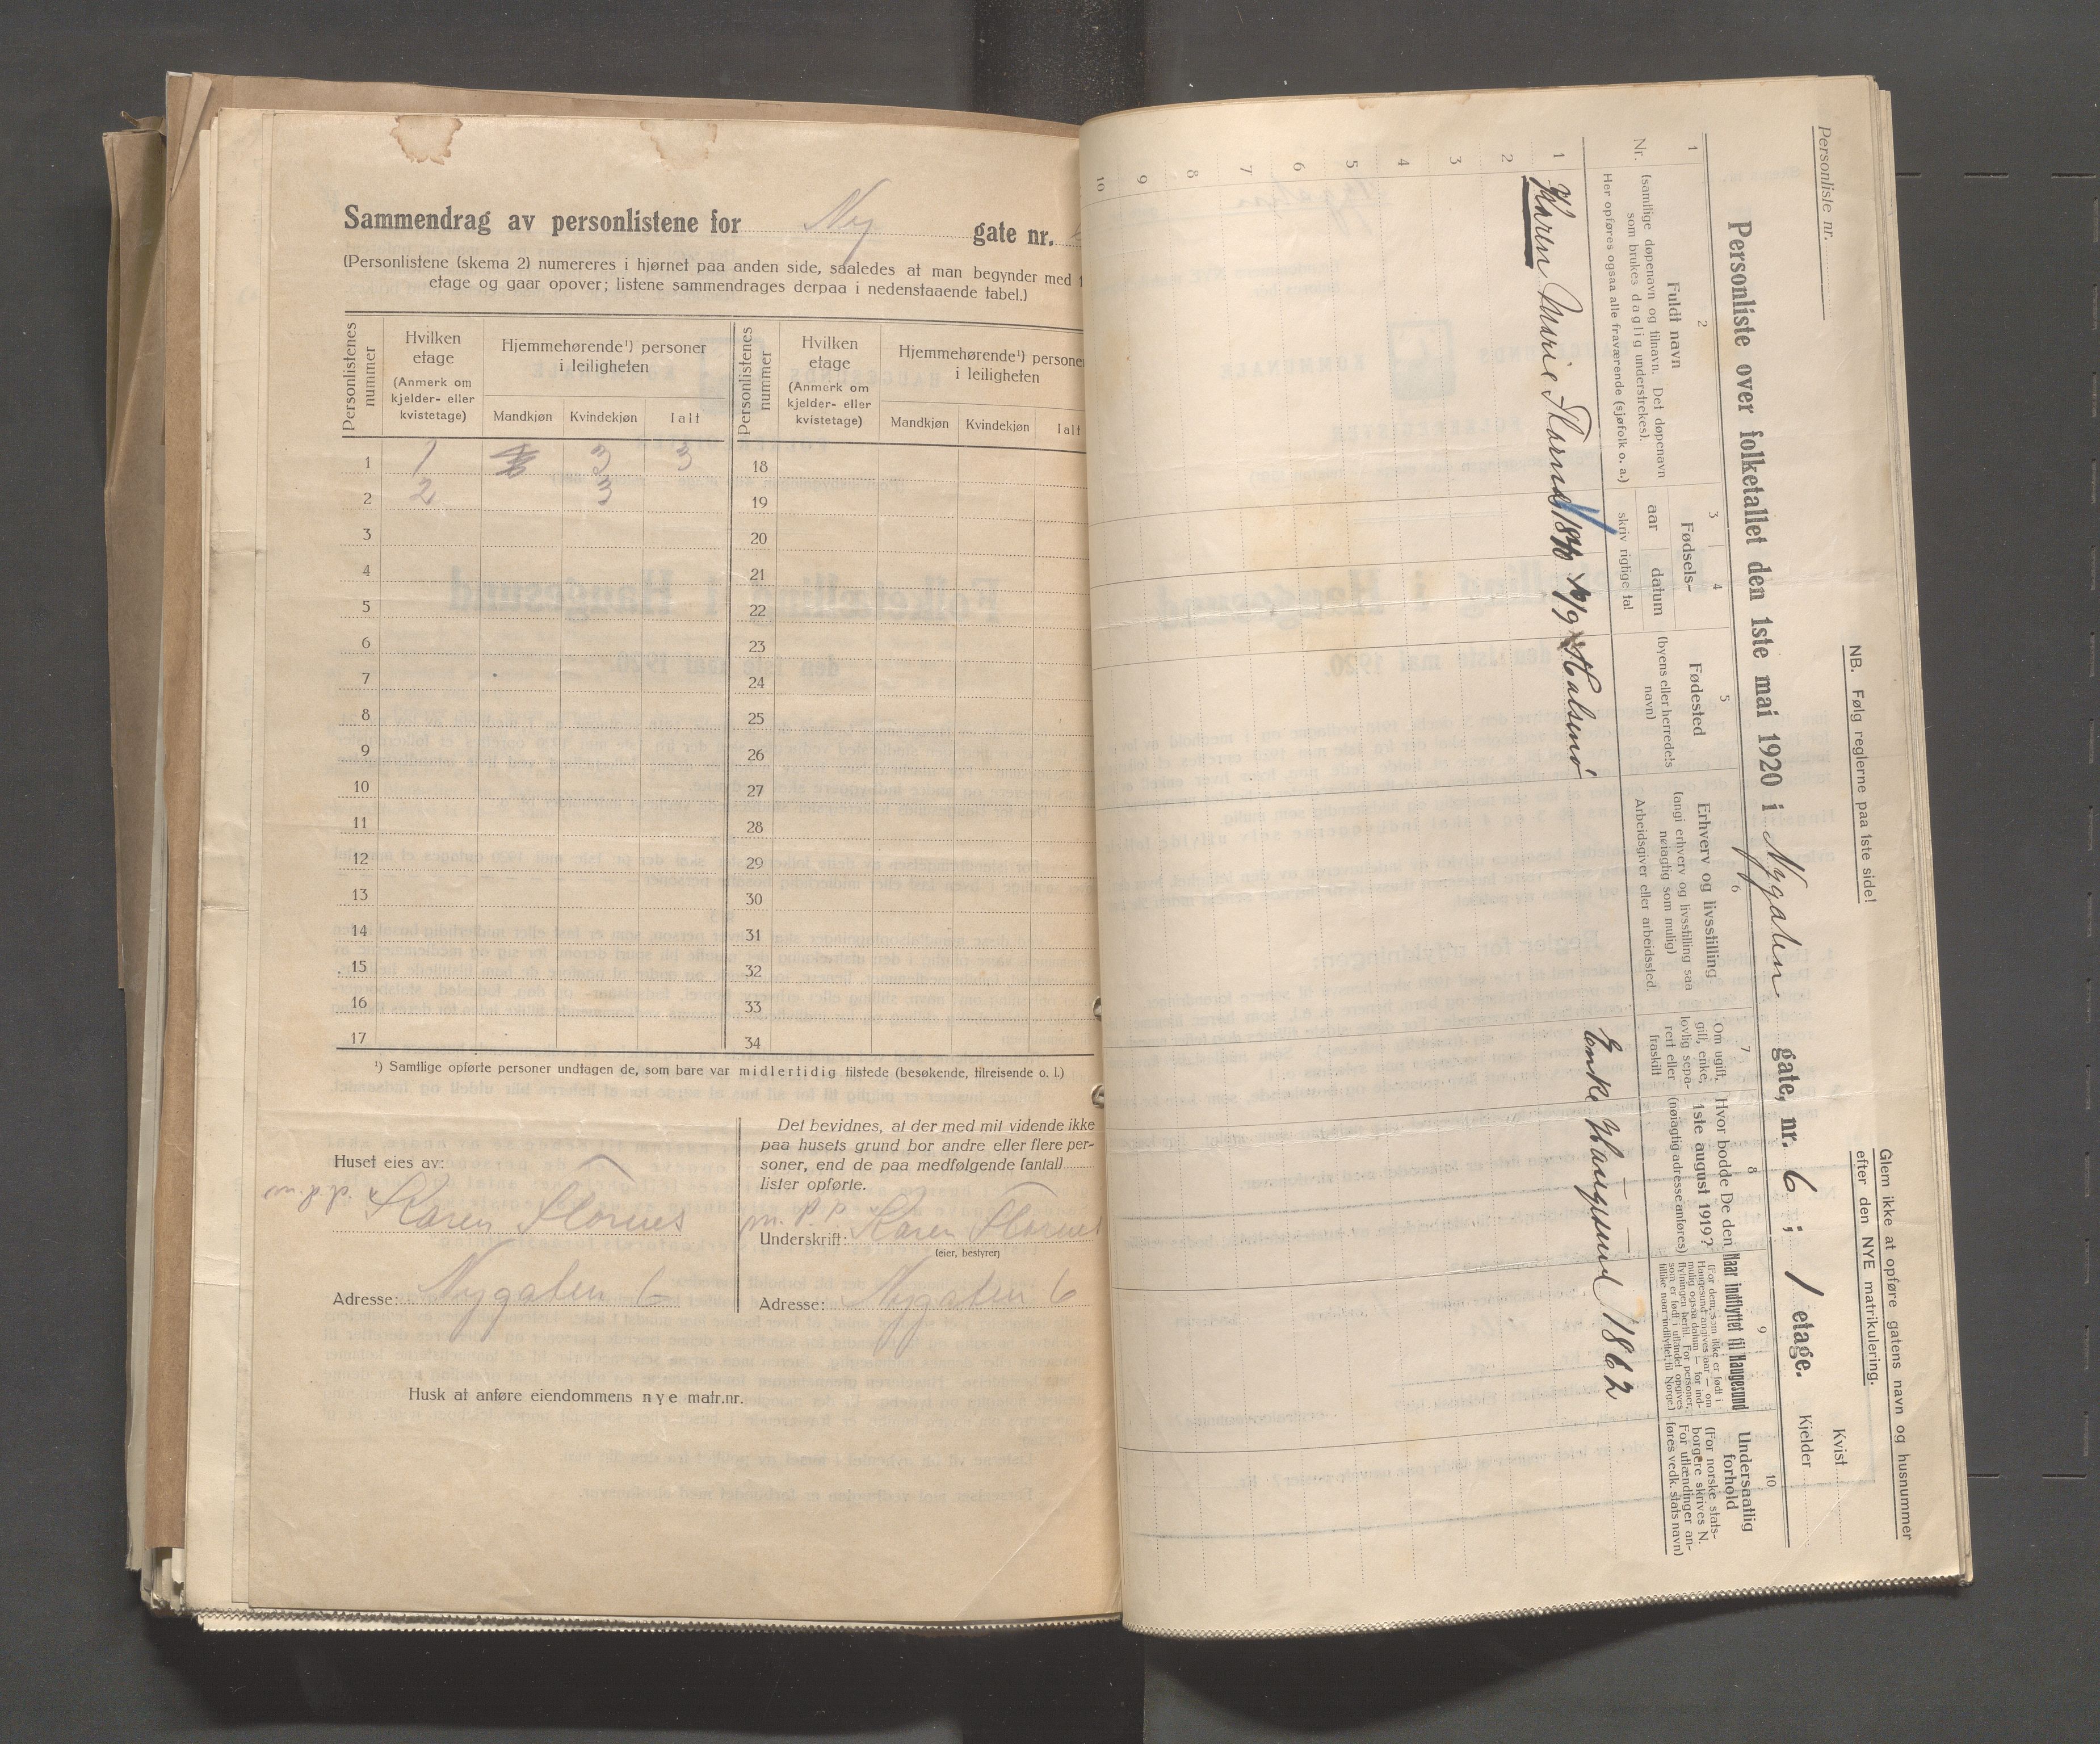 Sammendrag av personlistene for Ny gate nr.
(Personlistene (skema 2) numereres i hjørnet paa anden side, saaledes at man begynder med 1
etage og gaar opover; listene sammendrages derpaa i nedenstaaende tabel.)
Personlistenes nummer
Hvilken etage
(Anmerk om kjelder- eller kvistetage)
Hjemmehørende¹) personer i leiligheten
Mandkjøn Kvindekjøn Ialt
Personlistenes nummer
Hvilken etage
(Anmerk om kjelder- eller kvistetage)
Hjemmehørende¹) personer i leiligheten
Mandkjøn Kvindekjøn Ialt
1 1 3 3 18
2 2 3 19
3 20
4 21
5 22
6 23
7 24
8 25
9 26
10 27
11 28
12 29
13 30
14 31
15 32
16 33
17 34
¹) Samtlige opførte personer undtagen de, som bare var midlertidig tilstede (besøkende, tilreisende o. l.)
Huset eies av:
m.p.p. Karen Flornes
Adresse: Nygaten 6
Det bevidnes, at der med mit vidende ikke
paa husets grund bor andre eller flere per-
soner, end de paa medfølgende (antal)
lister opførte.
m.p.p.
Underskrift: Karen Flornes
(eier, bestyrer)
Adresse: Nygaten 6
Husk at anføre eiendommens nye matr.nr.
Personliste nr.
NB. Følg reglerne paa 1ste side!
Glem ikke at opføre gatens navn og husnummer
efter den NYE matrikulering.
Kvist
Kjelder
Personliste over folketallet den 1ste mai 1920 i Nygaten gate, nr. 6 ; 1 etage.
1 2 3 4 5 6 7 8 9 10
Nr.
Fuldt navn
(samtlige døpenavn og tilnavn. Det døpenavn
som brukes daglig understrekes).
Her opføres ogsaa alle fraværende (sjøfolk o. a.)
Fødsels-
aar datum
skriv rigtige tal
Fødested
(byens eller herredets
navn)
Erhverv og livsstilling
(angi erhverv og livsstilling saa
nøiagtig som mulig)
Arbeidsgiver eller arbeidssted.
Om ugift,
gift, enke,
lovlig sepa-
rert eller
fraskilt
Hvor bodde De den
1ste august 1919?
(nøiagtig adresse anføres)
Naar indflyttet til Haugesund
(For dem, som ikke er født i
Haugesund angives aar — om
mulig ogsaa datum — for ind-
flytningen hertil. For personer,
som er født i utlandet opgives
tillike naar indflyttet til Norge.)
Undersaatlig
forhold
(For norske stats-
borgere skrives N.
For utlændinger an-
føres vedk. stats navn)
1 Karen Marie Flornes Halsenø Enke Haugesund 1862
2
3
4
5
6
7
8
9
10